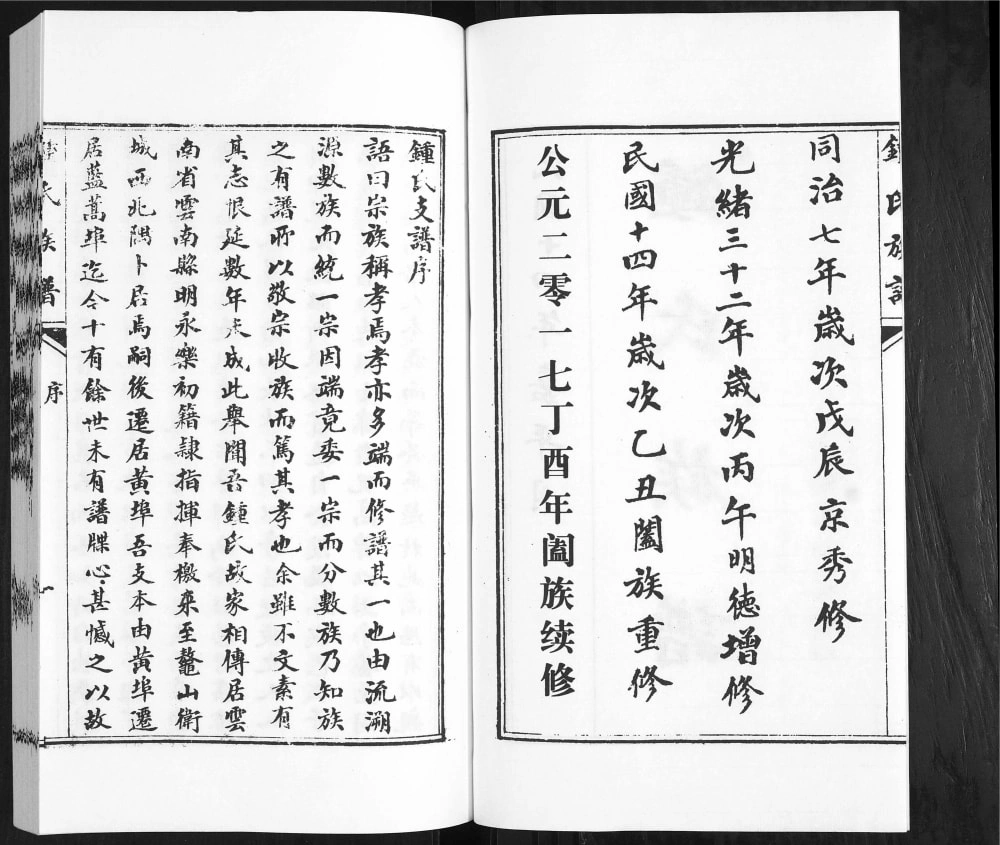 同治七年歲次戊辰京秀修
光緒三十二年歲次丙午明德增修
民國十四年歲次乙丑闔族重修
公元二零一七丁酉年阖族续修
鍾氏支譜序
語曰宗族稱孝焉孝亦多端而修譜其一也由流溯
源數族而統一宗因端竟委一宗而分數族乃知族
之有譜所以敬宗收族而篤其孝也余雖不文素有
其志恨延數年未成此舉聞吾鍾氏故家相傳居雲
南省雲南縣明永樂初籍隸指揮奉檄來至鼇山衛
城西北隅卜居焉嗣後遷居黃埠吾支本由黃埠遷
居藍蒿埠迄今十有餘世未有譜牒心甚慽之以故
氏族譜
序